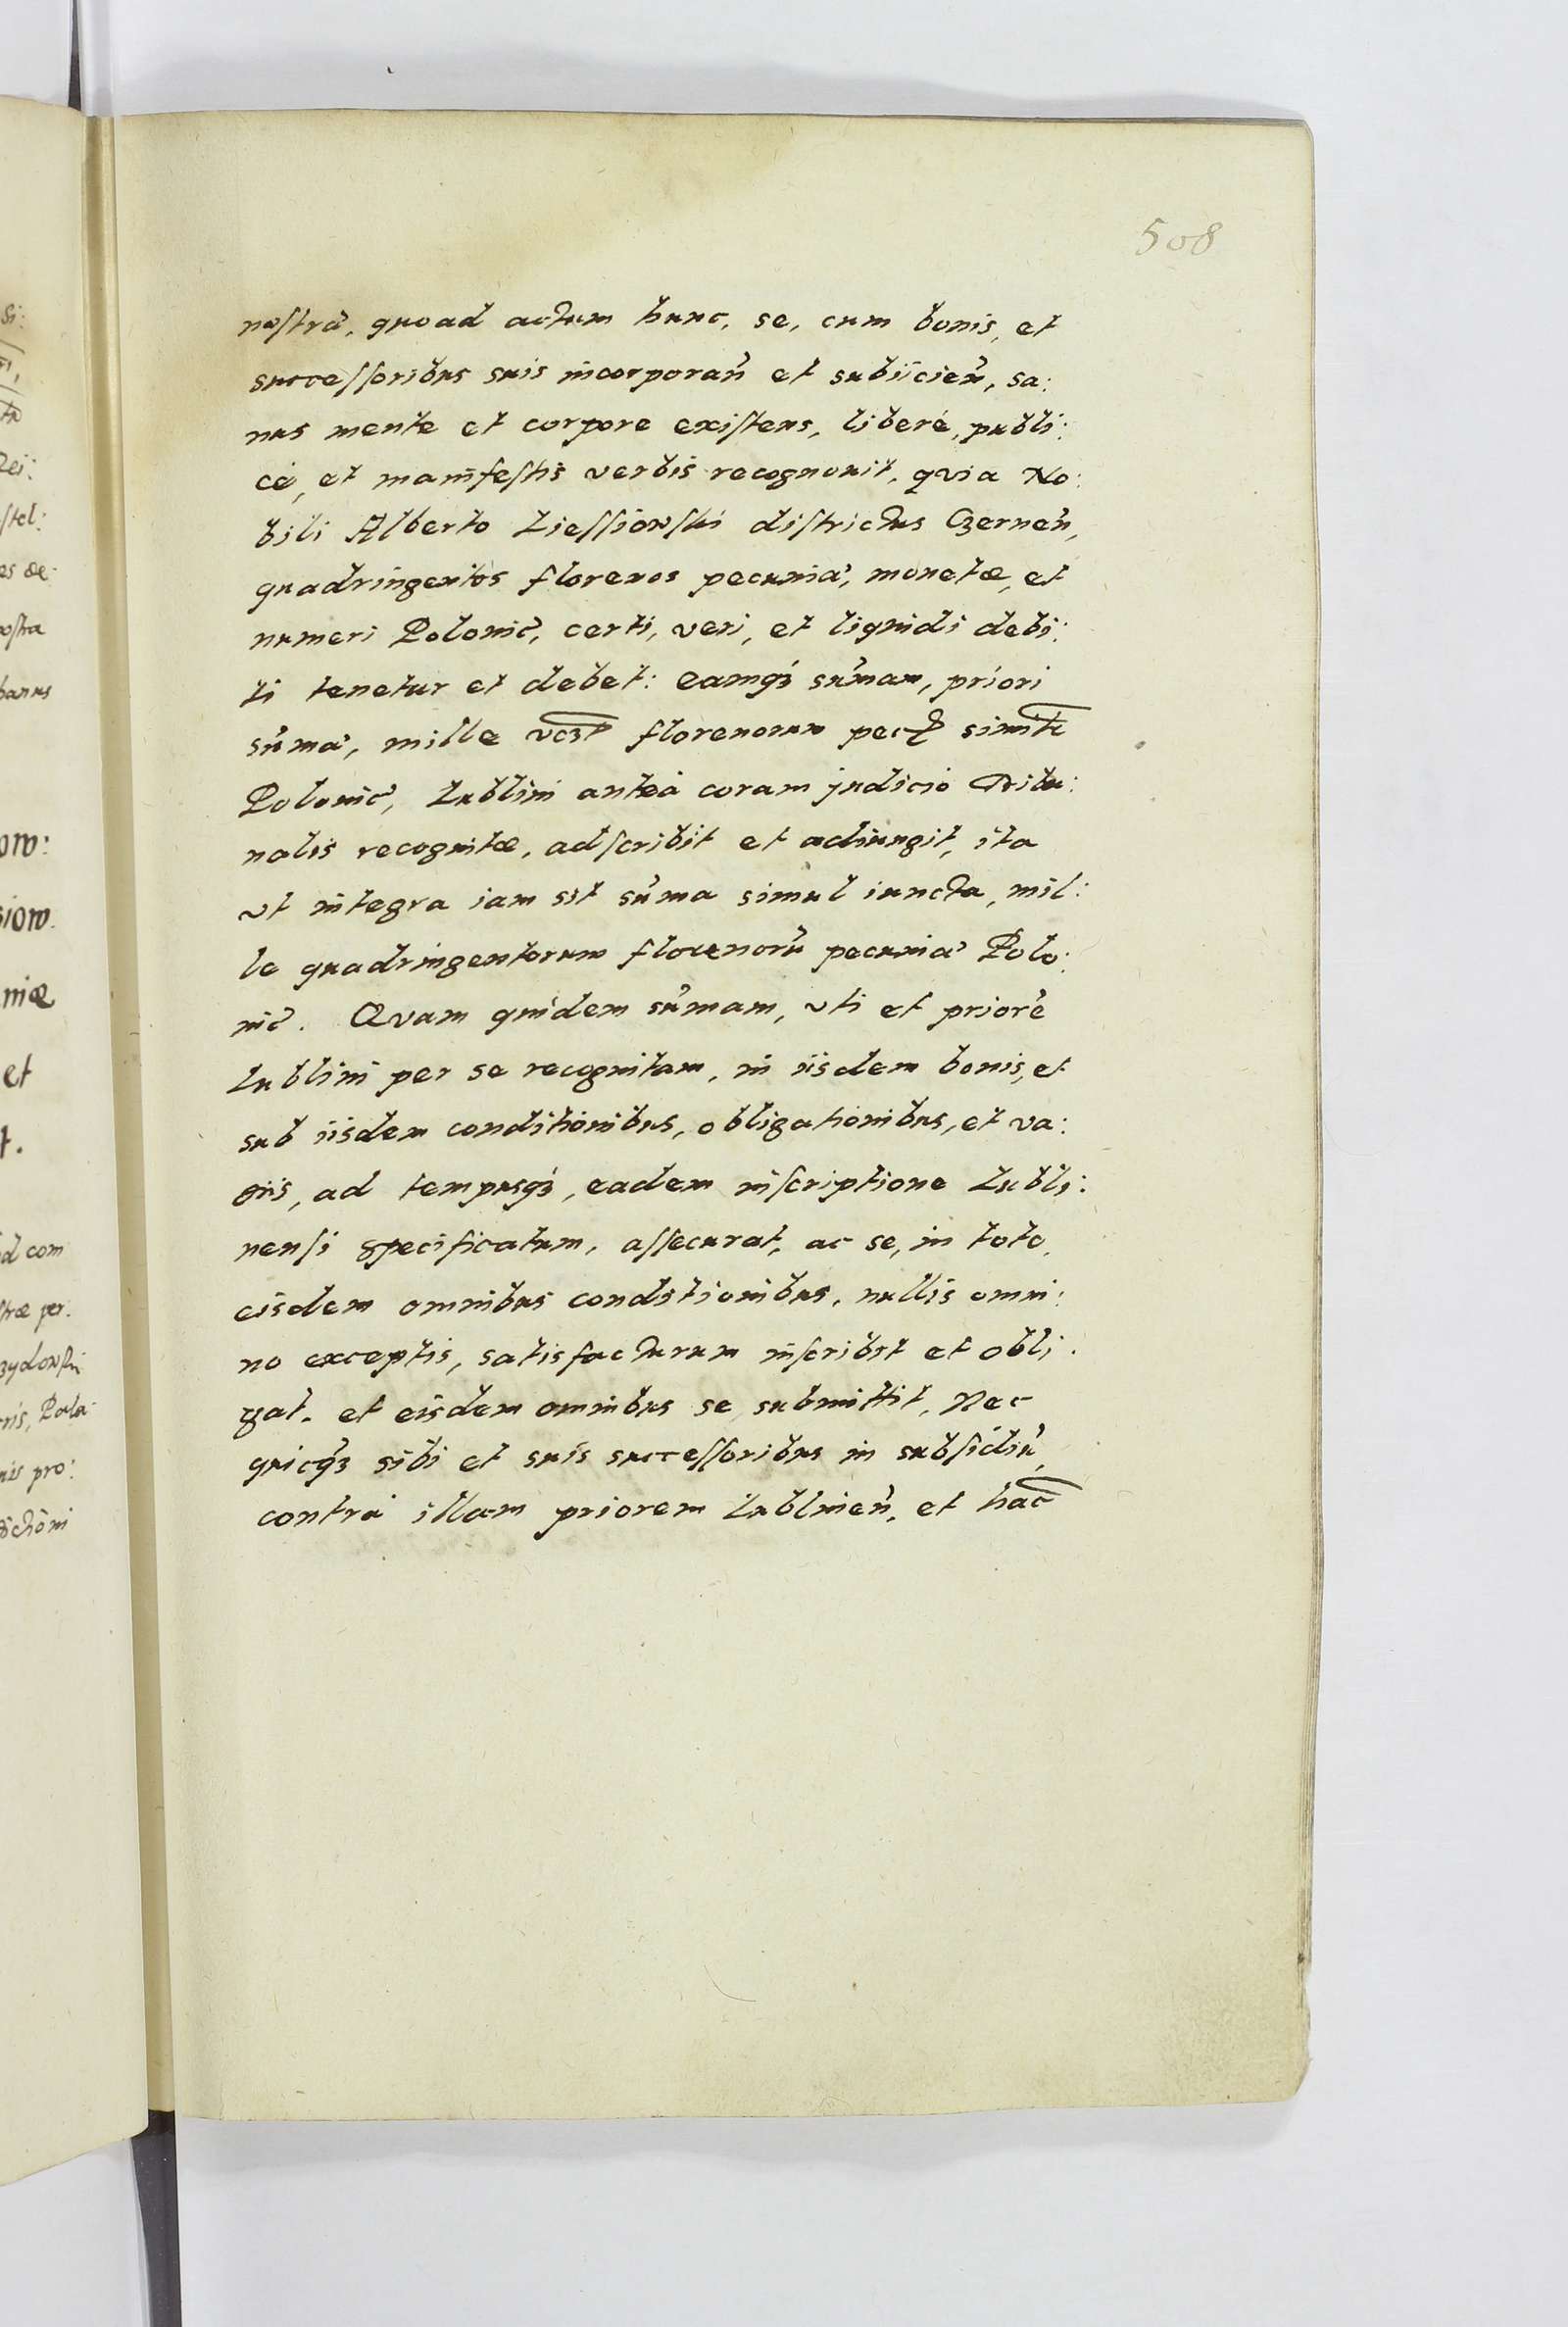 508
nostra, quoad actum hunc, se, cum bonis, et
successoribus suis incorporañ et subiicieñ, sa:
nus mente et corpore existens, liberè, publi:
cè, et manifestis verbis recognouit, qvia No:
bili Alberto Liessiowski districtus Czerneñ,
quadringentos florenos pecuniæ, monetæ, et
numeri Polonic̃, certi, veri, et liquidi debi:
ti tenetur et debet: eamq́ȝ sum̃am, priori
sum̃æ, mille florenorum simil̃r
Polonic̃, Lublini anteà coram judicio Tribu:
nalis recognitæ, adscribit et adiungit, ita
vt integra iam sit sum̃a simul iuncta, mil:
le quadringentorum florenorũ pecuniæ Polo:
nic̃. Qvam quidem sum̃am, vti et priorẽ
Lublini per se recognitam, in iisdem bonis, et
sub iisdem conditionibus, obligationibus, et va:
diis, ad tempusq́ȝ, eadem inscriptione Lubli:
nensi specificatum, assecurat, ac se, in toto,
eisdem omnibus conditionibus, nullis omni:
no exceptis, satisfacturum inscribit et obli:
gat, et eisdem omnibus se submittit, Nec
quicq̃ȝ sibi et suis successoribus in subsidiũ,
contrà illam priorem Lublineñ, et hac̃